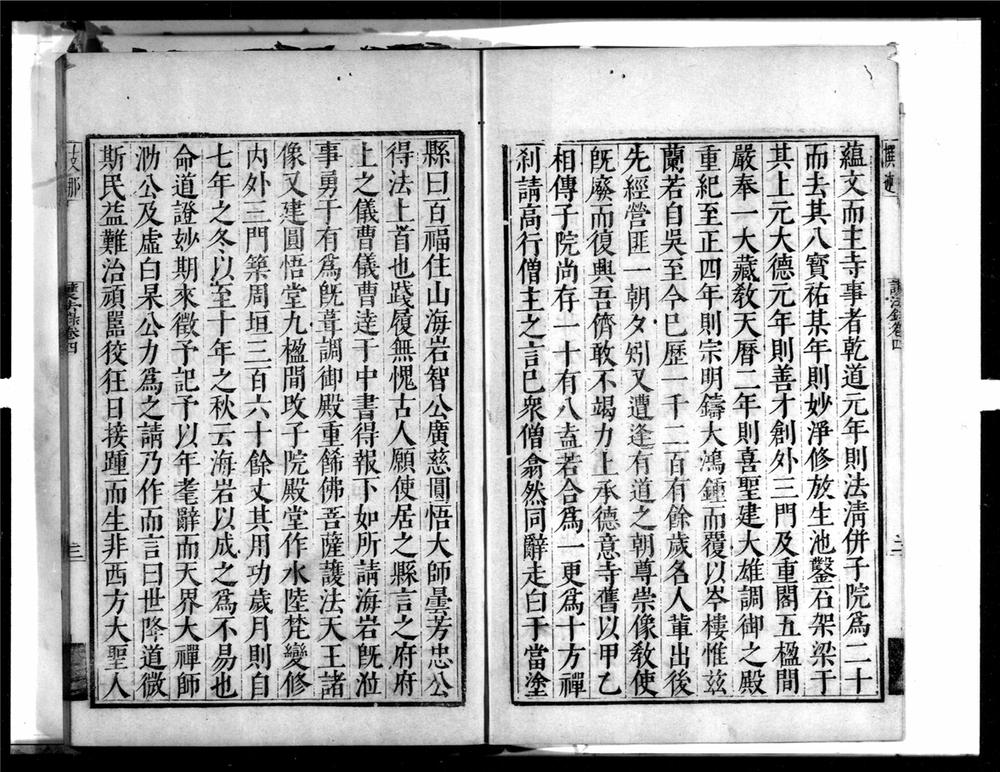 蘊文而主寺事者乾道元年則法淸併子院爲二十
而去其八寶祐某年則妙淨修放生池鑿石架梁于
其上元大德元年則善才創外三門及重閣五楹間
嚴奉一大藏敎天曆二年則喜聖建大雄調御之殿
重紀至正四年則宗明鑄大鴻鍾而覆以岑樓惟玆
蘭若自吳至今巳歷一千二百有餘歲名人軰出後
先經營匪一朝夕矧又遭逢有道之朝尊崇像敎使
旣廢而復興吾儕敢不竭力上承德意寺舊以甲乙
相傳子院尚存一十有八盍若合爲一更爲十方禪
刹請高行僧主之言巳衆僧翕然同辭走白于當塗
縣曰百福住山海岩智公廣慈圓悟大師曇芳忠公
得法上首也踐履無愧古人願使居之縣言之府府
上之儀曹儀曹達于中書得報下如所請海岩旣涖
事勇于有爲旣葺調御殿重餙佛菩薩護法天王諸
像又建圓悟堂九楹間攺子院殿堂作水陸梵變修
內外三門築周垣三百六十餘丈其用功歲月則自
七年之冬以至十年之秋云海岩以成之爲不易也
命道證妙期來徵予記予以年耄辭而天界大禪師
泐公及虛白杲公力爲之請乃作而言曰世降道微
斯民益難治頑嚚狡狂日接踵而生非西方大聖人
護法錄卷四
二
護法錄卷四
三